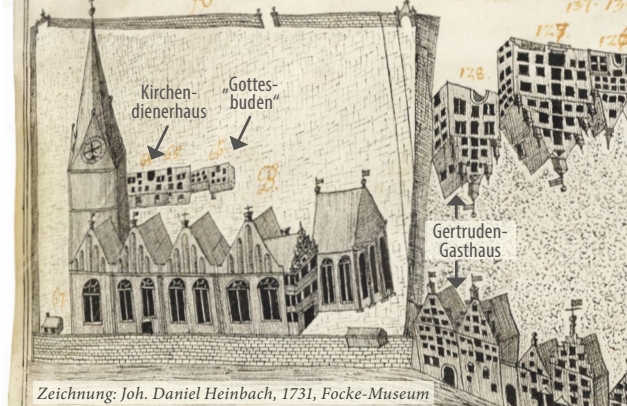 137- 13
127.
126
128.
Kirchen-
dienerhaus
„Gottes-
buden“
B.
Gertruden-
Gasthaus
Zeichnung: Joh. Daniel Heinbach, 1731, Focke-Museum